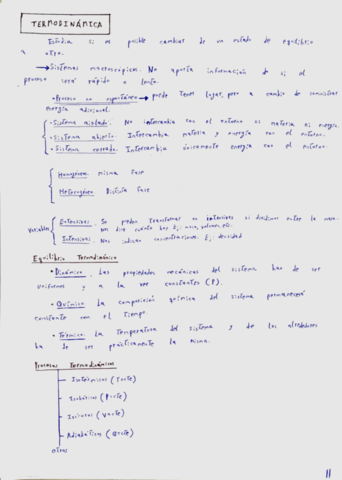 TERMODINÁMICA
Estudia si es posible cambiar de un estado de equilibrio
a otro.
→ Sistemas macroscópicos. No aporta información de si el
proceso será rápido o lento.
• Proceso no espontáneo → puede tener lugar, pero a cambio de suministrar
energía adicional.
• Sistema aislado. No intercambia con el entorno ni materia ni energía.
• Sistema abierto. Intercambia materia y energía con el entorno.
• Sistema cerrado. Intercambia únicamente energía con el entorno.
Homogéneo: misma fase
Heterogéneo: Distinta fase
Variables
Extensivas: Se pueden transformar en intensivas si dividimos entre la masa.
Nos dice cuánto hay. Ej: masa, volumen, etc.
Intensivas: Nos indican concentraciones. Ej: densidad
Equilibrio Termodinámico
• Dinámico. Las propiedades mecánicas del sistema han de ser
uniformes y a la vez constantes (P).
• Químico. La composición química del sistema permanecerá
constante con el tiempo
• Térmico. La Temperatura del sistema y de los alrededores
ha de ser prácticamente la misma.
Procesos Termodinámicos
Isotérmicos (T=cte)
Isobáricos (P=cte)
Isócoros (V=cte)
Adiabáticos (Q=cte)
otros
11